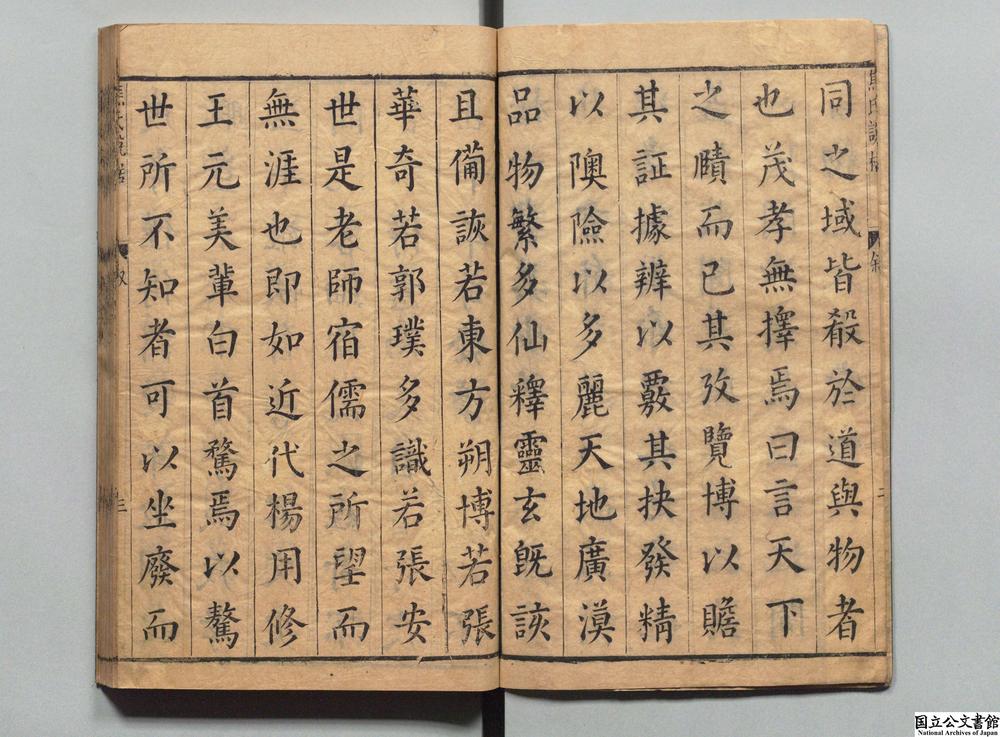 同之域皆殽於道與物者
也茂孝無擇焉曰言天下
之賾而已其攷覽博以贍
其証據辨以覈其抉發精
以隩險以多麗天地廣漠
品物繁多仙釋靈玄旣該
且備詼若東方朔博若張
華奇若郭璞多識若張安
世是老師宿儒之所望而
無涯也即如近代楊用修
王元美輩白首騖焉以驁
世所不知者可以坐廢而
叙
三
国立公文書館
National Archives of Japan